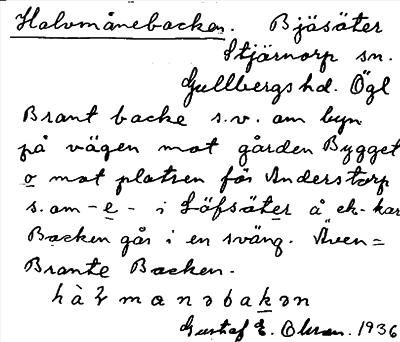 Halvmånebacken. Bjäsäter
Stjärnorp sn.
Gullbergs hd. Ögl
Brant backe s.v. om byn
på vägen mot gården Bygget
o mot platsen för Anderstorp
s. om - e - i Löfsäter å ek-kar
Backen går i en sväng. Även =
Brante Backen.
Gustaf E. Olsson. 1936